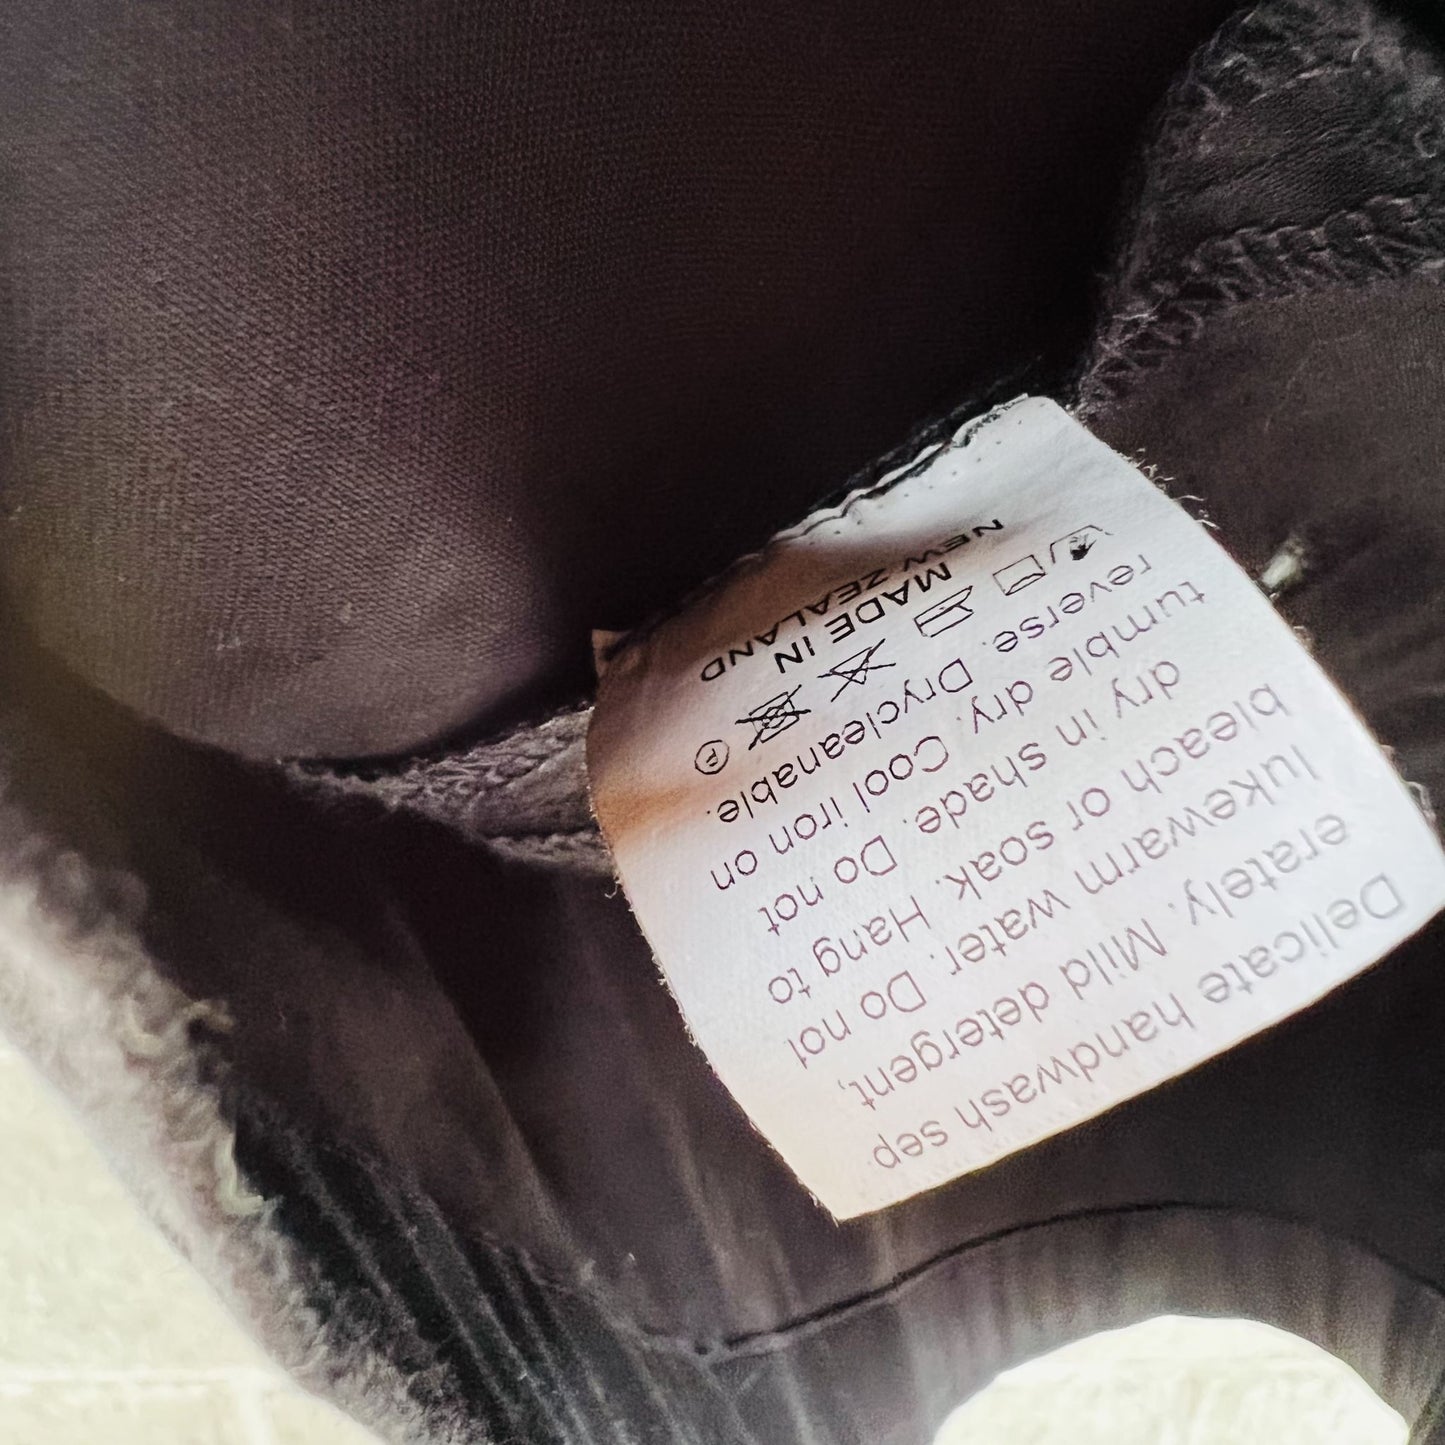 Delicate handwash sep
erately. Mild detergent,
lukewarm water. Do not
bleach or soak. Hang to
dry in shade. Do not
tumble dry. Cool iron on
reverse. Drycleanable.
P
MADE IN
NEW ZEALAND
NEW